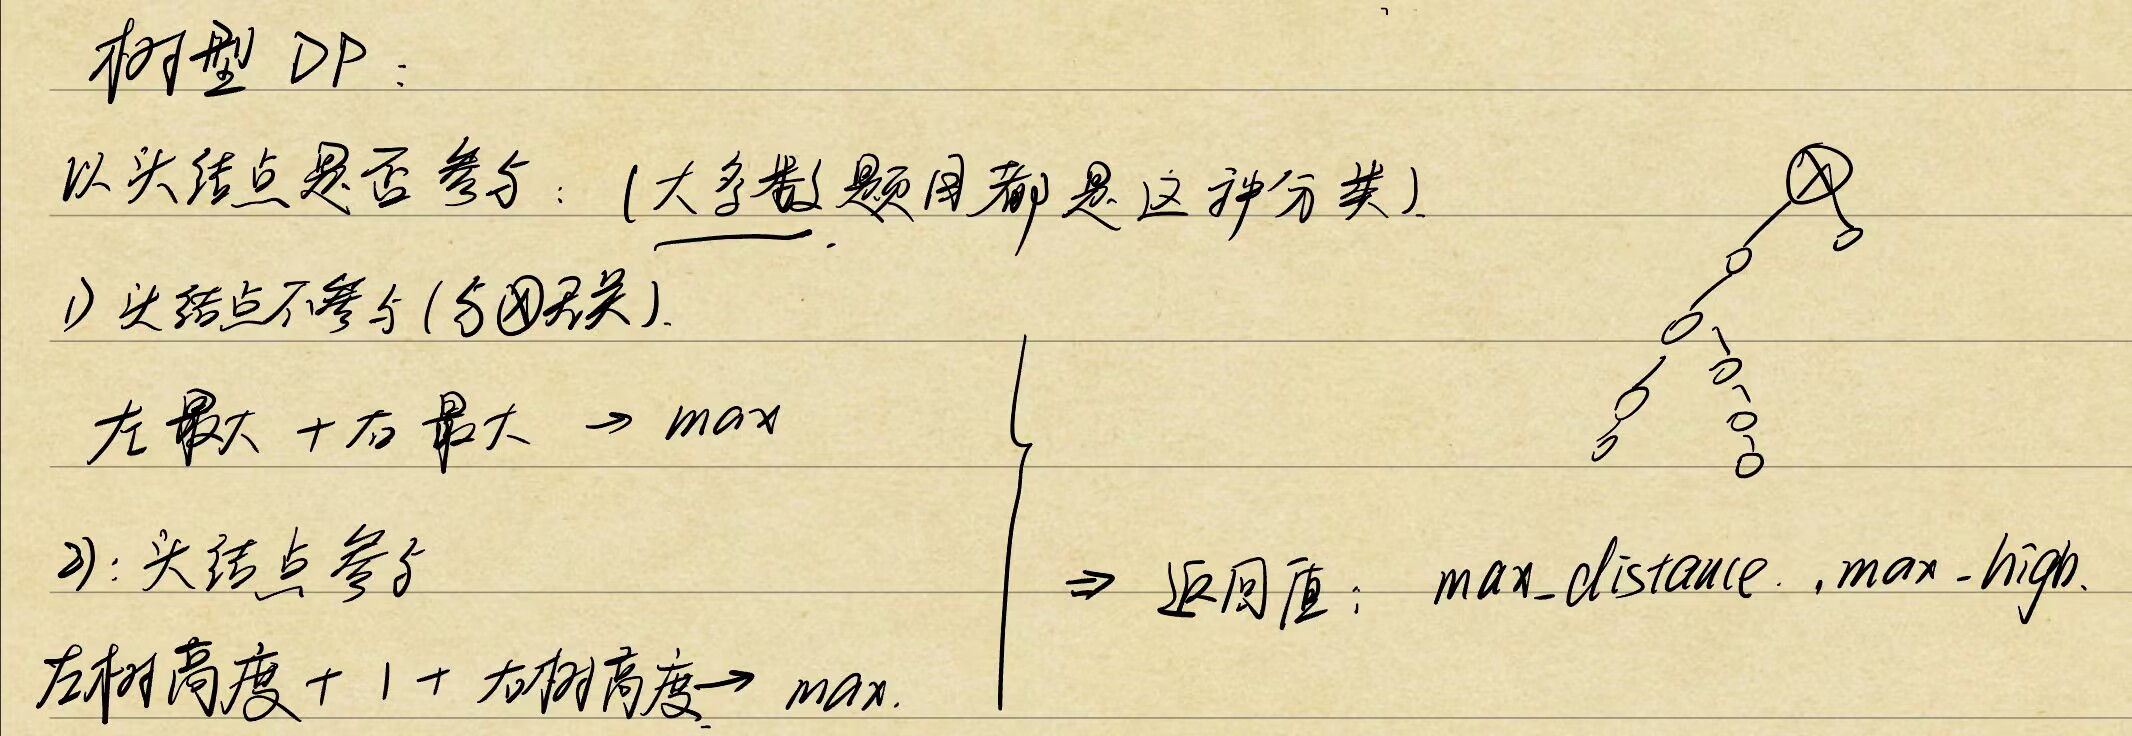 树型 DP:
以头结点是否参与: (大多数题目都是这种分类).
1) 头结点不参与(与Ⓧ无关).
左最大 + 右最大 → max
2): 头结点参与
左树高度 + 1 + 右树高度 → max.
⇒ 返回值: max_distance. , max-high.
X